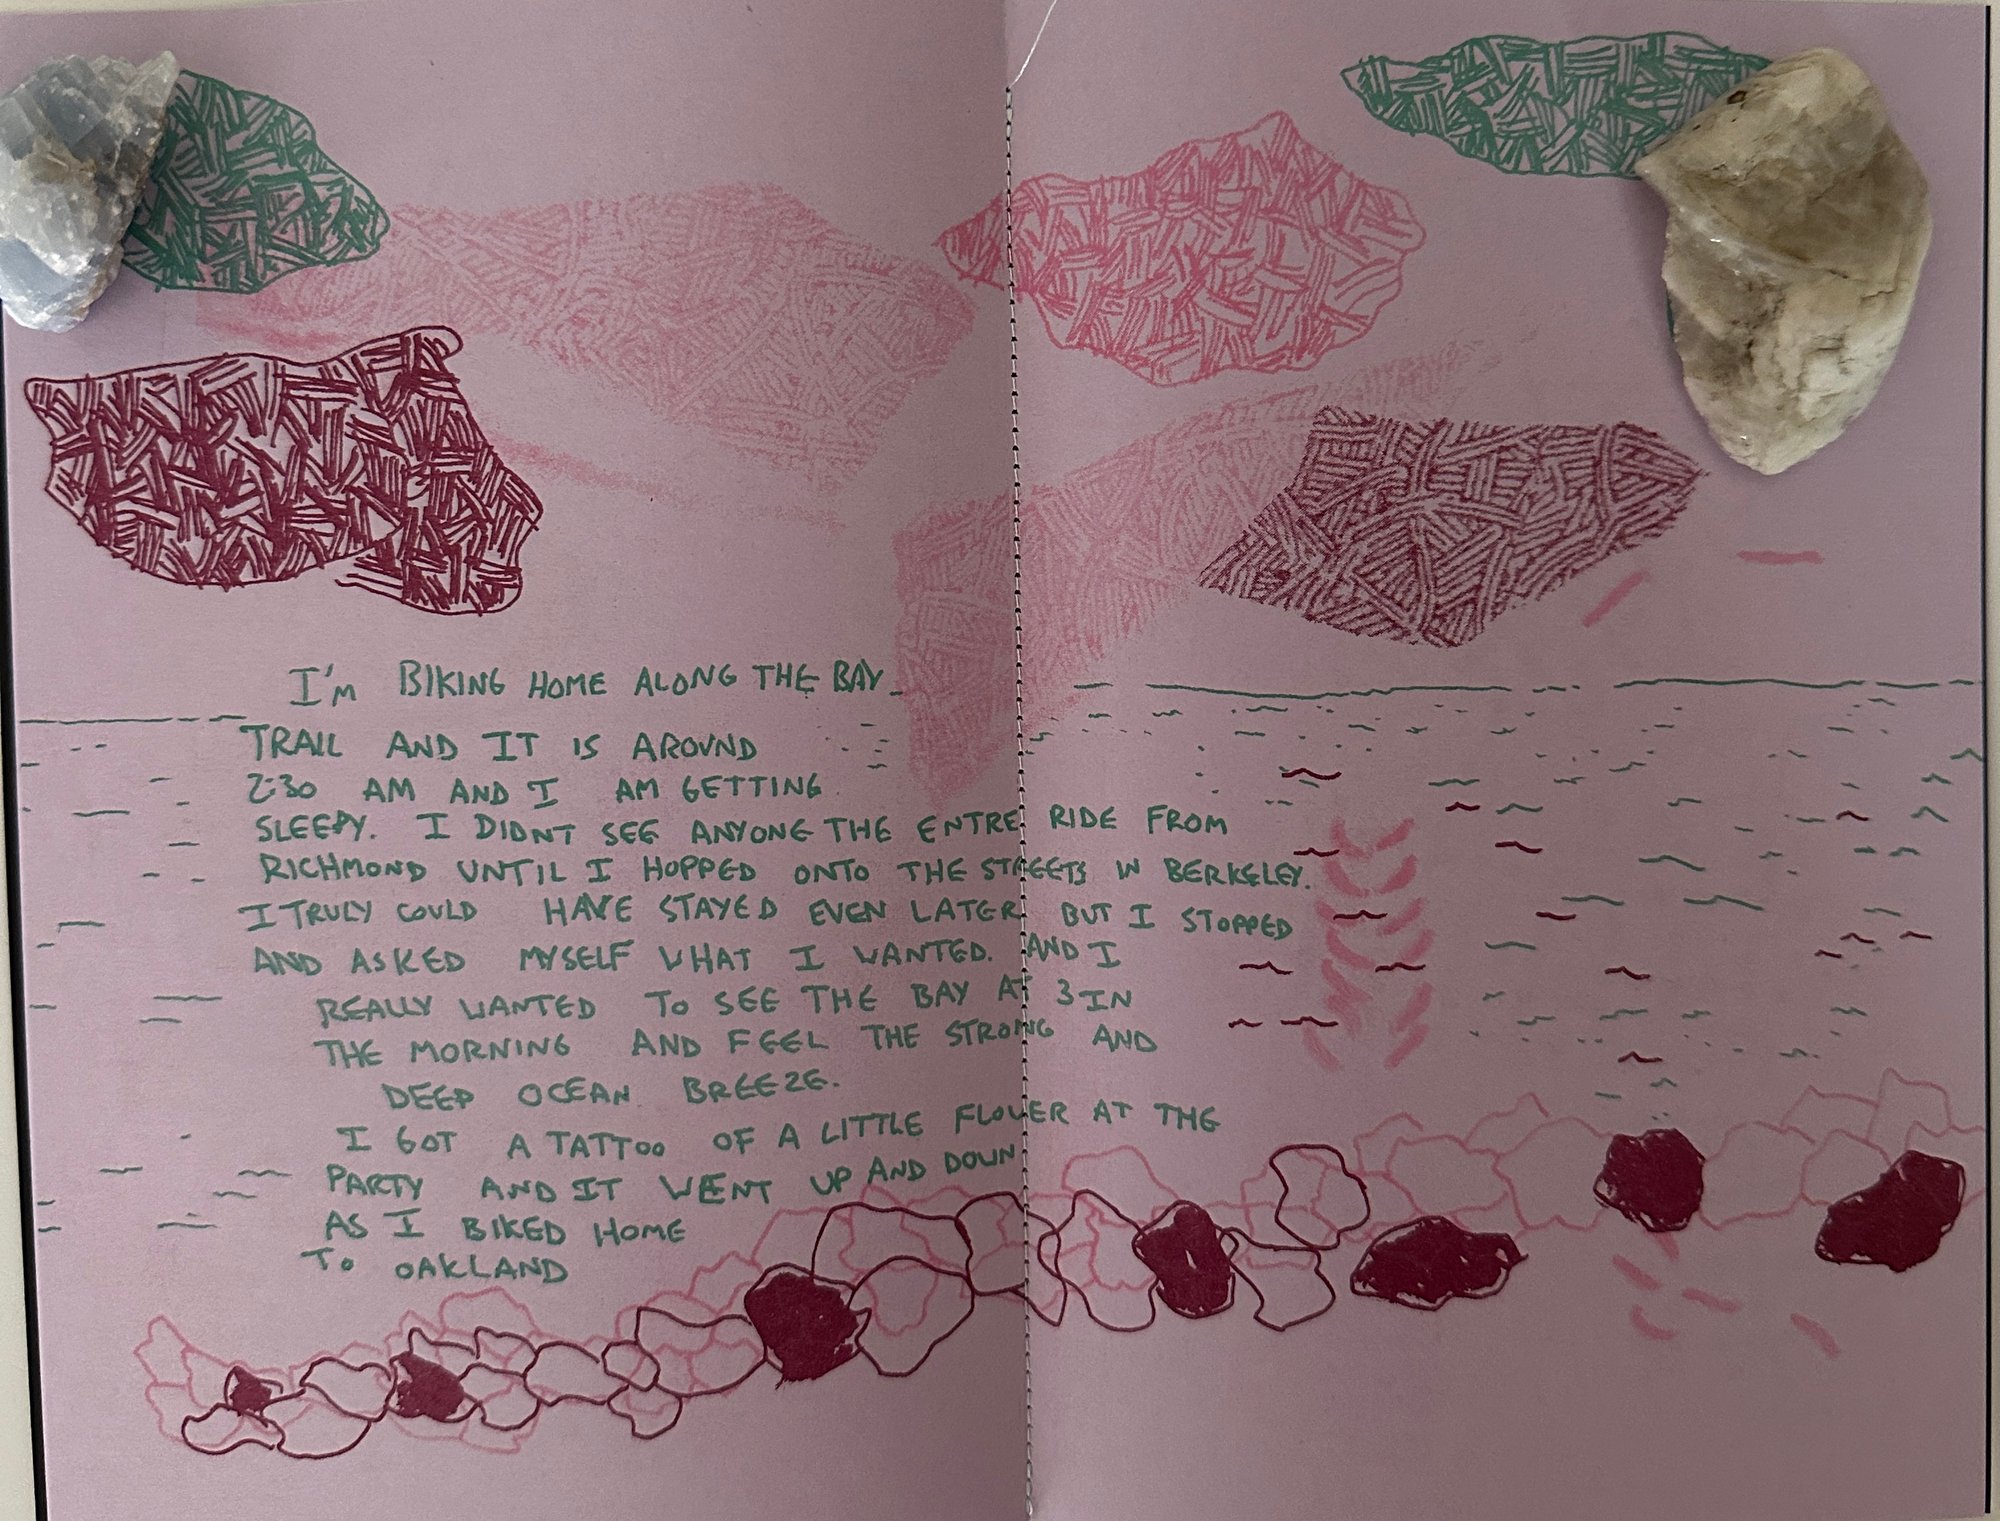 I'M BIKING HOME ALONG THE BAY
TRAIL AND IT IS AROUND
2:30 AM AND I AM GETTING
SLEEPY. I DIDNT SEE ANYONE THE ENTRE RIDE FROM
RICHMOND UNTIL I HOPPED ONTO THE STREETS IN BERKELEY.
I TRULY COULD HAVE STAYED EVEN LATER BUT I STOPPED
AND ASKED MYSELF WHAT I WANTED. AND I
REALLY WANTED TO SEE THE BAY AT 3 IN
THE MORNING AND FEEL THE STRONG AND
DEEP OCEAN BREEZE.
I GOT A TATTOO OF A LITTLE FLOWER AT THE
PARTY AND IT WENT UP AND DOWN
AS I BIKED HOME
TO OAKLAND